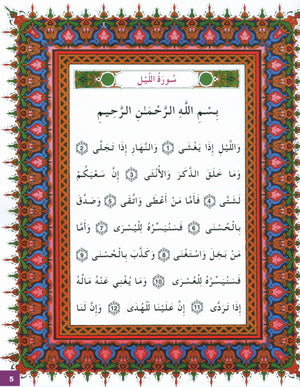 سُورَةُ اللَّيْلِ
بِسْمِ اللَّهِ الرَّحْمَٰنِ الرَّحِيمِ
وَاللَّيْلِ إِذَا يَغْشَى ① وَالنَّهَارِ إِذَا تَجَلَّى ②
وَمَا خَلَقَ الذَّكَرَ وَالْأُنْثَى ③ إِنَّ سَعْيَكُمْ
لَشَتَّى ④ فَأَمَّا مَنْ أَعْطَى وَاتَّقَى ⑤ وَصَدَّقَ
بِالْحُسْنَى ⑥ فَسَنُيَسِّرُهُ لِلْيُسْرَى ⑦ وَأَمَّا
مَنْ بَخِلَ وَاسْتَغْنَى ⑧ وَكَذَّبَ بِالْحُسْنَى ⑨
فَسَنُيَسِّرُهُ لِلْعُسْرَى ⑩ وَمَا يُغْنِي عَنْهُ مَالُهُ
إِذَا تَرَدَّى ⑪ إِنَّ عَلَيْنَا لَلْهُدَى ⑫ وَإِنَّ لَنَا
5